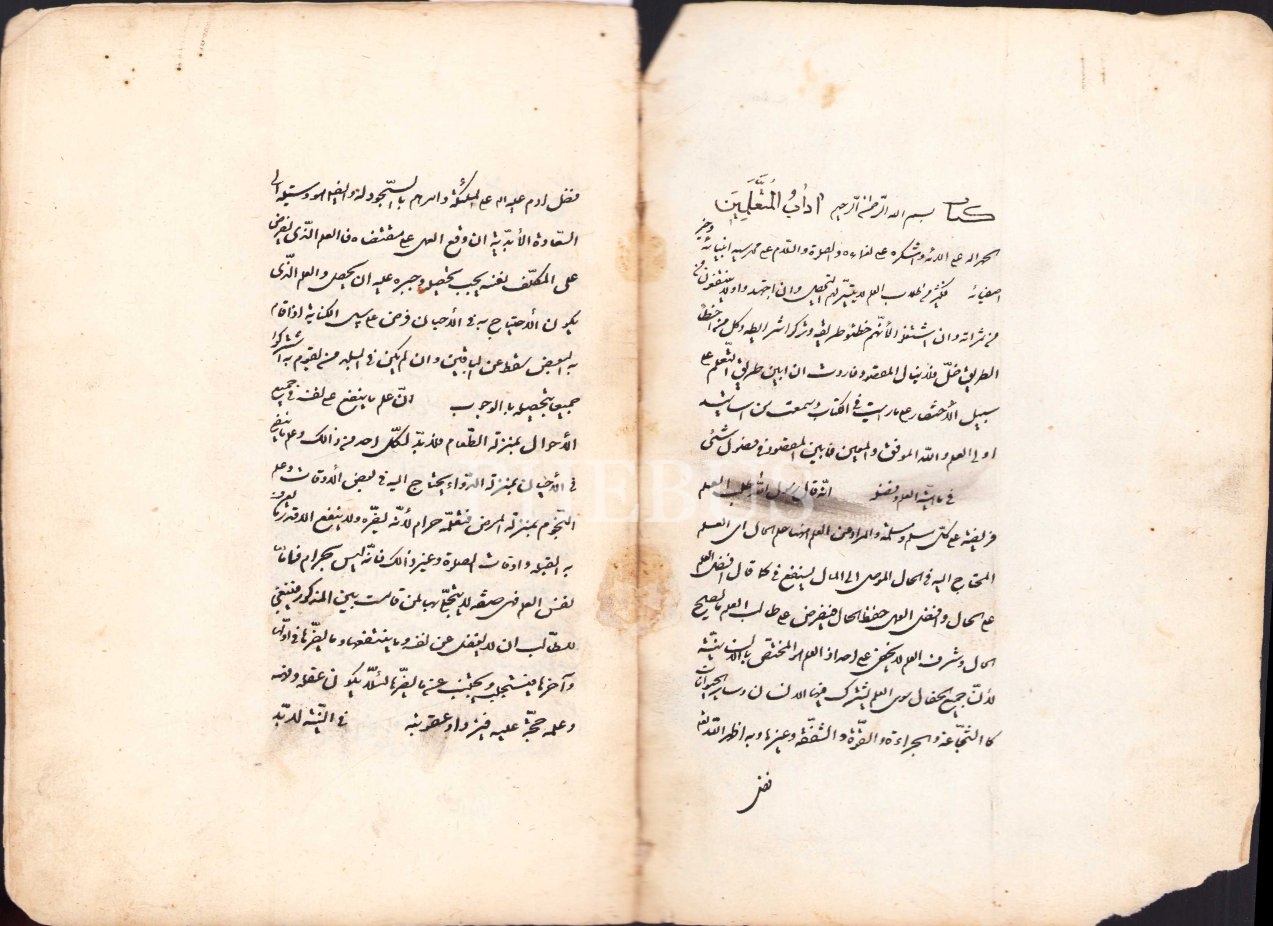 كتاب بسم الله الرحمن الرحيم اداب المتعلمين
الحمد لله على آلائه واشكره على نعمائه والصلوة والسلام على محمد سيد انبيائه وخير
اصفيائه فكثير من طلاب العلم لا يتيسر لهم التحصيل وان اجتهدوا ولا ينتفعون
من ثمراته وان اشتغلوا لأنهم خطئوا طريقه وتركوا شرايطه وكل من اخطأ
الطريق ضلّ فلا ينال المقصود فاردت ان ابين طريق التعلم على
سبيل الأختصار على ما رايت في الكتاب وسمعت من اساتيد
اولى العلم والله الموفق والمعين فابين المقصود في فصول شتى
في ماهية العلم وفضله انه قال رسول الله طلب العلم
فريضة على كل مسلم ومسلمة والمراد من العلم ههنا علم الحال اى العلم
المحتاج اليه في الحال الموصل الى المال لينفع فيه كما قال افضل العلم
علم الحال وافضل العمل حفظ الحال فيفرض على طالب العلم ما يصلح
الحال وشرف العلم لا يخفى على احد اذ العلم هو المختص بالانسانية
لأن جميع الخصال سوى العلم يشترك فيها الانسان وساير الحيوانات
كالشجاعة والجراءة والقوّة والشفقة وغيرها وبه اظهر الله تعالى
فضل
فضل ادم عليه السلام على الملئكة وامرهم بالسجود له وايضا هو وسيلة الى
السعادة الأبدية ان وقع العمل على مقتضاه فالعلم الذى يفرض
على المكلف بعينه يجب تحصيله وجبره عليه ان يحصل والعلم الذى
يكون الأحتياج به في الأحيان فرض على سبيل الكفاية اذا قام
به البعض سقط عن الباقين وان لم يكن في البلد من يقوم به اشتركوا
جميعا بتحصيله بالوجوب انّ علم ما ينفع على نفسه في جميع
الأحوال بمنزلة الطعام فلا بدّ لكل احد من ذالك وعلم ما ينفع
في الأحيان بمنزلة الدواء يحتاج اليه في بعض الأوقات وعلم
النجوم بمنزلة المرض فتعلّمه حرام لأنه يضرّه ولا ينفع الا قدر ما يعرف
به القبلة واوقات الصلوة وغير ذالك فانه ليس بحرام فاما
تفسير العلم فهى صفة لا يتجلّى بها لمن قامت به المذكور فينبغى
للطالب ان لا يغفل عن نفسه وما ينفعها وما يضرّها في اولها
وآخرها فيستجلب ويجتنب عن ما يضرّها لئلا يكون عقله وعلمه
وعلمه حجّة عليه فيزداد عقوبته في النية لا بدّ